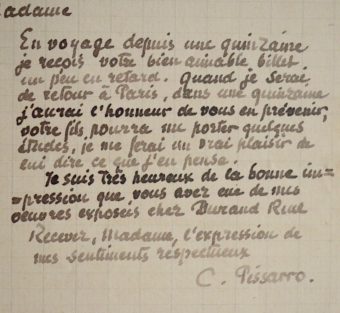 adame
En voyage depuis une quinzaine
je reçois votre bien aimable billet
un peu en retard. Quand je serai
de retour à Paris, dans une quinzaine
j'aurai l'honneur de vous en prévenir,
votre fils pourra me porter quelques
études, je me ferai un vrai plaisir de
lui dire ce que j'en pense.
Je suis très heureux de la bonne im=
=pression que vous avez eue de mes
oeuvres exposeés chez Durand Ruel
Recevez, Madame, l'expression de
mes sentiments respectueux
C. Pissarro.